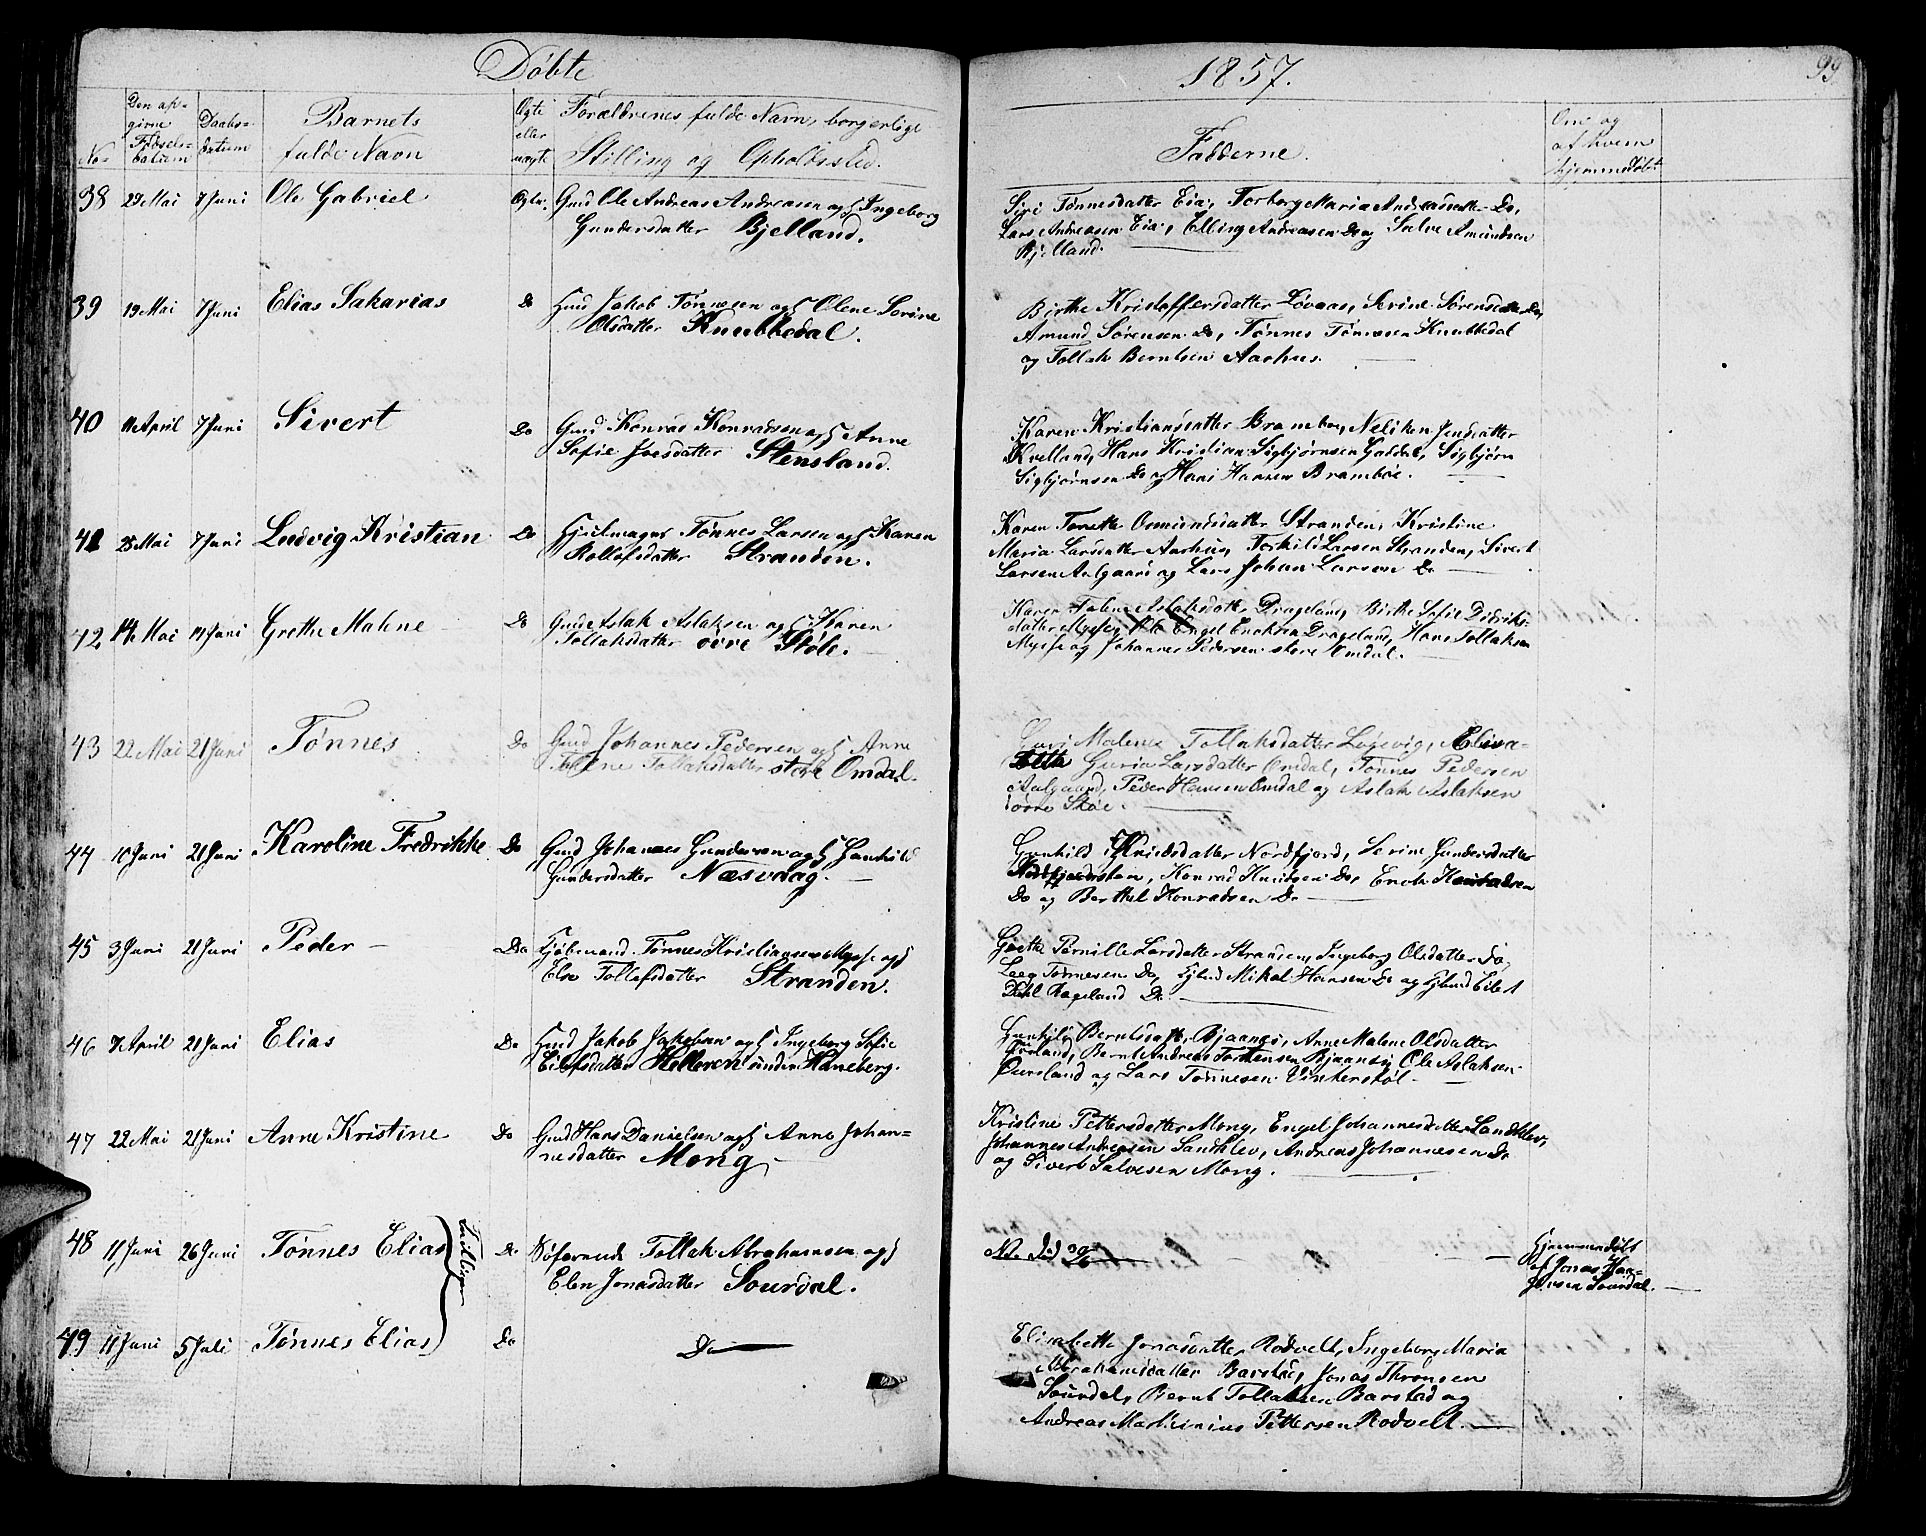 Döbte
1857.
99
No.
Den ap-
girne
Födsels-
datum
Daabs-
datum
Barnets
fulde Navn
Ægte
eller
uægte
Forældrenes fulde Navn, borgerlige
Stilling og Opholdssted.
Fadderne.
Om og
af hvem
hjemmedöbt
38 29 Mai 7 Juni Ole Gabriel Ægte. Gmd Ole Andreas Andreasen og H Ingeborg
Gundersdatter Bjelland.
Siri Tönnesdatter Eia, Torborg Maria Andreasdatter Do,
Lars Andreasen Eia, Elling Andreasen Do og Salve Amundsen
Bjelland.
39 19 Mai 7 Juni Elias Sakarias Do Hmd Jakob Tönnesen og H Olene Sorine
Olsdatter Knubbedal.
Birthe Kristoffersdatter Lövaas, Serine Sörensdatter Do,
Amund Sörensen Do, Tönnes Tönnesen Knubbedal
og Tollak Berntsen Aarhus.
40 11 April 7 Juni Sivert Do Gmd Konrad Konradsen og H Anne
Sofie Joesdatter Stensland.
Karen Kristiansdatter Bramboe, Neliken Jensdatter
Kvelland, Hans Kristian Sigbjörnsen Gaddal, Sigbjörn
Sigbjörnsen Do og Hans Hansen Bramböe.
41 25 Mai 7 Juni Ludvig Kristian Do Hjulmager Tönnes Larsen og H Karen
Rollefsdatter Stranden.
Karen Torette Osmundsdatter Stranden, Kristine
Maria Larsdatter Aarhus, Torkild Larsen Stranden, Sivert
Larsen Aalgaard og Lars Johan Larsen Do
42 14 Mai 14 Juni Grethe Malene Do Gmd Aslak Aslaksen og H Karen
Tollaksdatter övre Stöle.
Karen Talene Aslaksdatter Drageland, Birthe Sofie Didriks-
datter Mysse, Ole Engel Enoksen Drageland, Hans Tollaksen
Mysse og Johannes Pedersen store Omdal.
43 22 Mai 21 Juni Tönnes Do Gmd Johannes Pedersen og H Anne
Malene Tollaksdatter store Omdal.
Malene Tollaksdatter Logevig, Elisa-
bette Guria Larsdatter Omdal, Tönnes Pedersen
Aalgaard, Peder Hansen Omdal og Aslak Aslaksen
övre Stöe.
44 10 Juni 21 Juni Karoline Fredrikke Do Gmd Johannes Gundersen og H Gunhild
Gundersdatter Næsvdag.
Gunhild Knudsdatter Nordfjord, Serine Gundersdatter
Konrad Knudsen Do, Enok Konradsen
Do og Berthel Konradsen Do
45 3 Juni 21 Juni Peder Do Kjöbmand Tönnes Kristiansen Mysse og H
Else Tollefsdatter Stranden.
Grethe Pernille Larsdatter Stranden, Ingeborg Olsdatter Do,
Tönnesen Do, Kjbmd Mikal Hansen Do og Kjbmd Eilert
Dahl Rageland Do.
46 7 April 21 Juni Elias Do Hmd Jakob Jakobsen og H Ingeborg Sofie
Eilefsdatter Helleren under Haneberg.
Gunhild Berntsdatt. Bjaanes, Anne Malene Olsdatter
Öusland, Bernt Andreas Torkensen Bjaanes, Ole Aslaksen
Öursland og Lars Tönnesen Vinterstöl
47 22 Mai 21 Juni Anne Kristine Do Gmd Hans Danielsen og H Anne Johan-
nesdatter Mong.
Kristine Pettersdatter Mong, Engel Johannesdatter Sandklev,
Johannes Andreasen Sandklev, Andreas Johannesen Do
og Sivert Salvesen Mong.
48 11 Juni 26 Juni Tönnes Elias Tvillinger Do Söfarende Tollak Abrahamsen og H
Elen Jonasdatter Sourdal.
Nt. död 30/6
Hjemmedöbt
af Jonas Haa-
versen Sourdal.
49 11 Juni 5 Juli Tönnes Elias Do Do
Elisabethe Jonasdatter Rodvelt, Ingeborg Maria
Abrahamsdatter Barstad, Jonas Thronsen
Sourdal, Bernt Tollaksen Barstad og
Andreas Martinius Pettersen Rodvelt.